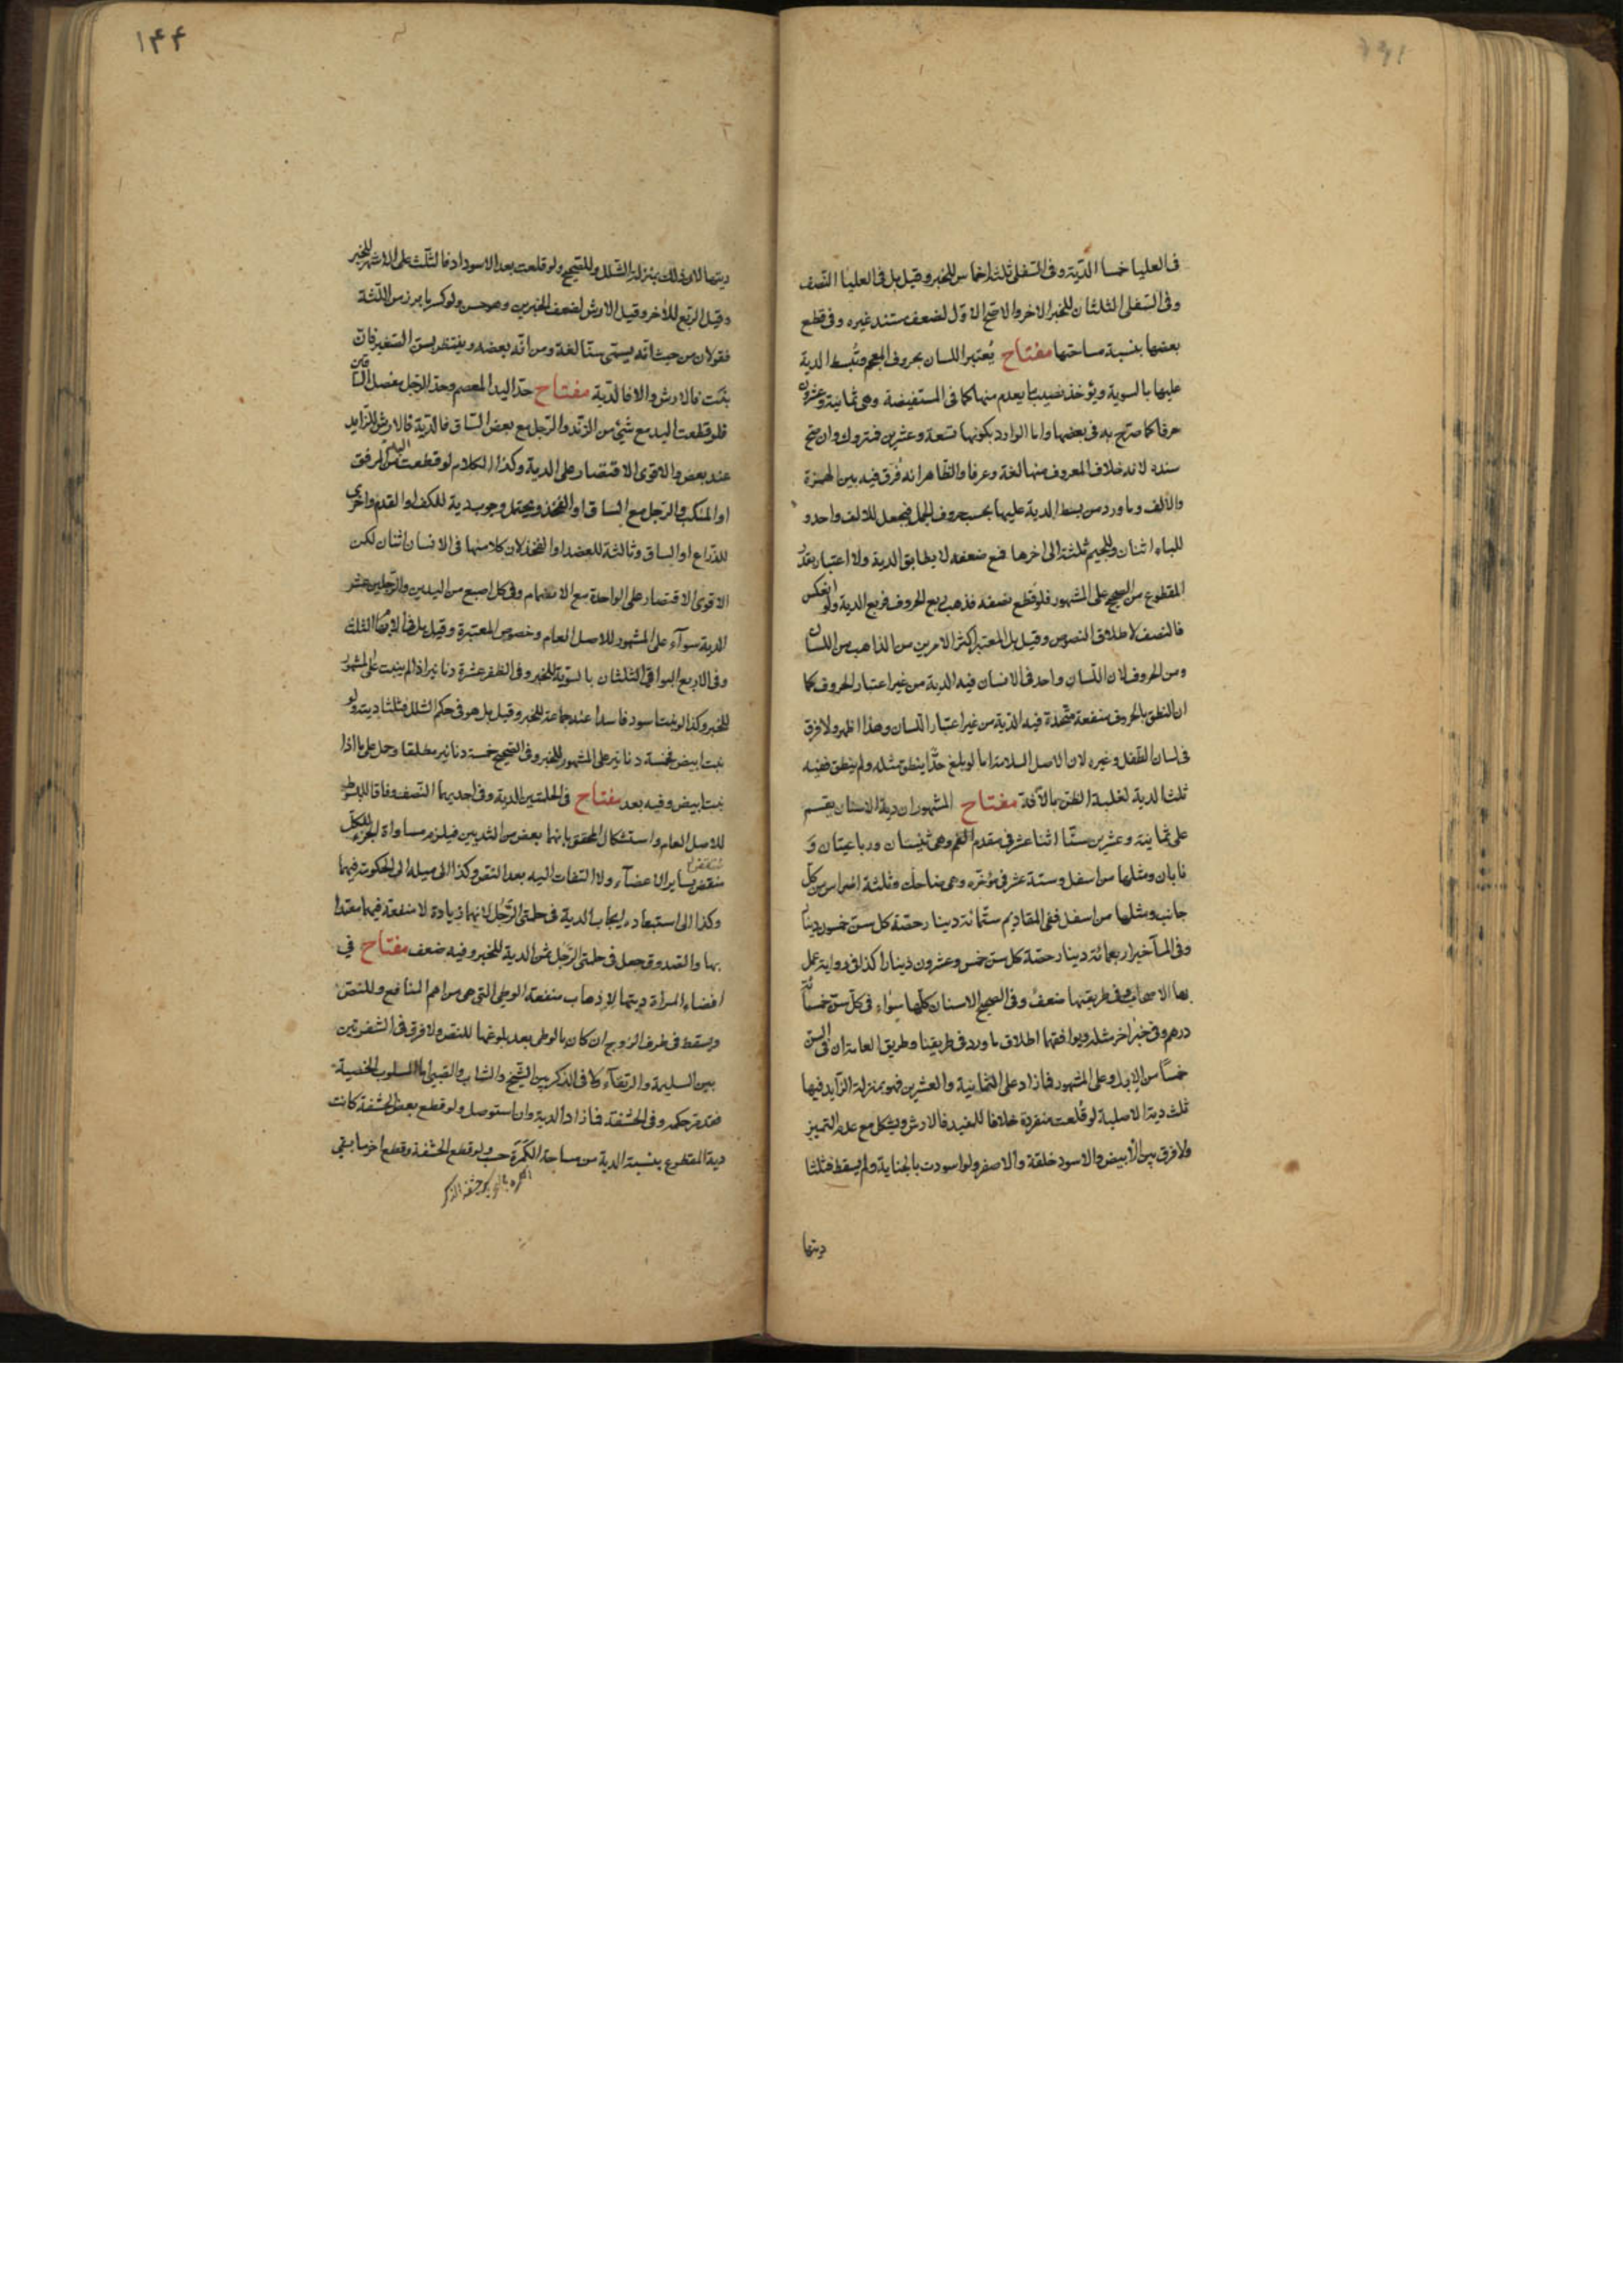 فى العليا خمسا الدّية وفى السّفلى ثلثة اخماس للخبر وقيل بل فى العليا النّصف
وفى السّفلى الثلثان للخبر الاخر والاصح الاوّل لضعف مستند غيره وفى قطع
بعضها بنسبة مساحتها مفتاح يُعتبر اللسان بحروف المعجم وتُبسط الدية
عليها بالسوية ويؤخذ نصيب ما يعدم منها كما فى المستفيضة وهى ثمانية وعشرون
حرفا كما صرّح به فى بعضها واما الوارد بكونها تسعة وعشرين فمتروك وان صحّ
سنده لانه خلاف المعروف منها لغة وعرفا والظاهر انه فُرق فيه بين الهمزة
والالف وما ورد من بسط الدية عليها بحسب حروف الجمل فيجعل للالف واحد و
للباء اثنان وللجيم ثلثة الى اخرها فمع ضعفه لا يطابق الدية ولا اعتبار بقدر
المقطوع من الصحيح على المشهور فلو قطع نصفه فذهب ربع الحروف فربع الدية ولو انعكس
فالنصف لاطلاق النصوص وقيل بل المعتبر اكثر الامرين من الذاهب من اللسان
ومن الحروف لان اللسان واحد فى الانسان فيه الدية من غير اعتبار الحروف كما
ان النطق بالحروف منفعة متّحدة فيه الدّية من غير اعتبار اللسان وهذا اظهر ولا فرق
فى لسان الطّفل وغيره لان الاصل السلامة اما لو بلغ حدّا ينطق مثله ولم ينطق ففيه
ثلث الدية لغلبة الظن بالآفة مفتاح المشهور ان دية الاسنان يقسم
على ثمانية وعشرين سنّا اثنا عشر فى مقدم الفم وهى ثنيتان ورباعيتان و
نابان ومثلها من اسفل وستة عشر فى مؤخّره وهى ضاحك وثلثة اضراس من كل
جانب ومثلها من اسفل ففى المقاديم ستّمائة دينار حصّة كل سن خمسون دينارا
وفى المآخير اربعمائة دينار حصّة كل سن خمس وعشرون دينارا كذا فى رواية عمل
بها الاصحاب وفى طريقتها ضعف وفى الصحيح الاسنان كلّها سواء فى كلّ سنّ خمسمائة
درهم وفى خبر اخر مثله ويوافقهما اطلاق ما ورد فى طريقنا وطريق العامة ان فى السن
خمسًا من الابل وعلى المشهور فما زاد على الثمانية والعشرين فهو بمنزلة الزّايد فيها
ثلث دية الاصلية لو قُلعت منفردة خلافا للمفيد فالارش ويشكل مع عدم التميز
ولا فرق بين الأبيض والاسود خلقة والاصفر ولو اسودت بالجناية ولم يسقط فثلثا
ديتها
١۴۴
ديتها لان ذلك بمنزلة الشّلل وللصّحيح ولو قلعت بعد الاسوداد فالثلث على الاشهر للخبر
وقيل الرّبع للأخر وقيل الارش لضعف الخبرين وهو حسن ولو كسر ما برز من اللّثة
فقولان من حيث انّه يسمّى سنّا لغة ومن انّه بعضه وينتظر بسنّ الصّغير فان
نبتت فالارش والا فالدّية مفتاح حدّ اليد المعصم وحدّ الرّجل مفصل السّاق
فلو قطعت اليد مع شئ من الزّند والرّجل مع بعض السّاق فالدّية فالارش للزّايد
عند بعض والاقوى الاقتصار على الدية وكذا الكلام لو قطعت اليد من المرفق
او المنكب والرّجل مع السّاق او الفخذ ويحتمل وجوب دية للكف او القدم واخرى
للذّراع او الساق وثالثة للعضد او الفخذ لان كلا منها فى الانسان اثنان لكن
الاقوى الاقتصار على الواحدة مع الانضمام وفى كل اصبع من اليدين والرّجلين عشر
الدية سوآء على المشهور للاصل العام وخصوص المعتبرة وقيل بل فى الابهام الثلث
وفى الاربع البواقى الثلثان بالسّوية للخبر وفى الظفر عشرة دنانير اذا لم ينبت على المشهور
للخبر وكذا لو نبت اسود فاسدا عند جماعة للخبر وقيل بل هو فى حكم الشلل فثلثا ديته ولو
نبت ابيض فخمسة دنانير على المشهور للخبر وفى الصّحيح خمسة دنانير مطلقا وحمل على ما اذا
نبت ابيض وفيه بعد مفتاح فى الحلمتين الدية وفى احديهما النّصف وفاقا للمبسوط
للاصل العام واستشكل المحقق بانها بعض من الثديين فيلزم مساواة الجزء للكل
منقض بساير الاعضآء ولا التفات اليه بعد النّص وكذا الى ميله الى الحكومة فيهما
وكذا الى استبعاده ايجاب الدية فى حلمتى الرّجُل لانهما زيادة لا منفعة فيهما معتدا
بها والصّدوق جعل فى حلمتى الرّجُل ثمن الدية للخبر وفيه ضعف مفتاح فى
افضاء المرأة ديتها لاذهاب منفعة الوطى التى هى من اهم المنافع وللنص
ويسقط فى طرف الزوج ان كان بالوطى بعد بلوغها للنص ولا فرق فى الشفرتين
بين السليمة والرتقآء كما فى الذّكر بين الشّيخ والشاب والصّبى اما المسلوب الخصية
فقد مر حكمه وفى الحشفة فما زاد الدية وان استوصل ولو قطع بعض الحشفة كانت
دية المقطوع بنسبة الدية من مساحة الكمرة حسب ولو قطع الحشفة وقطع اخر ما بقى